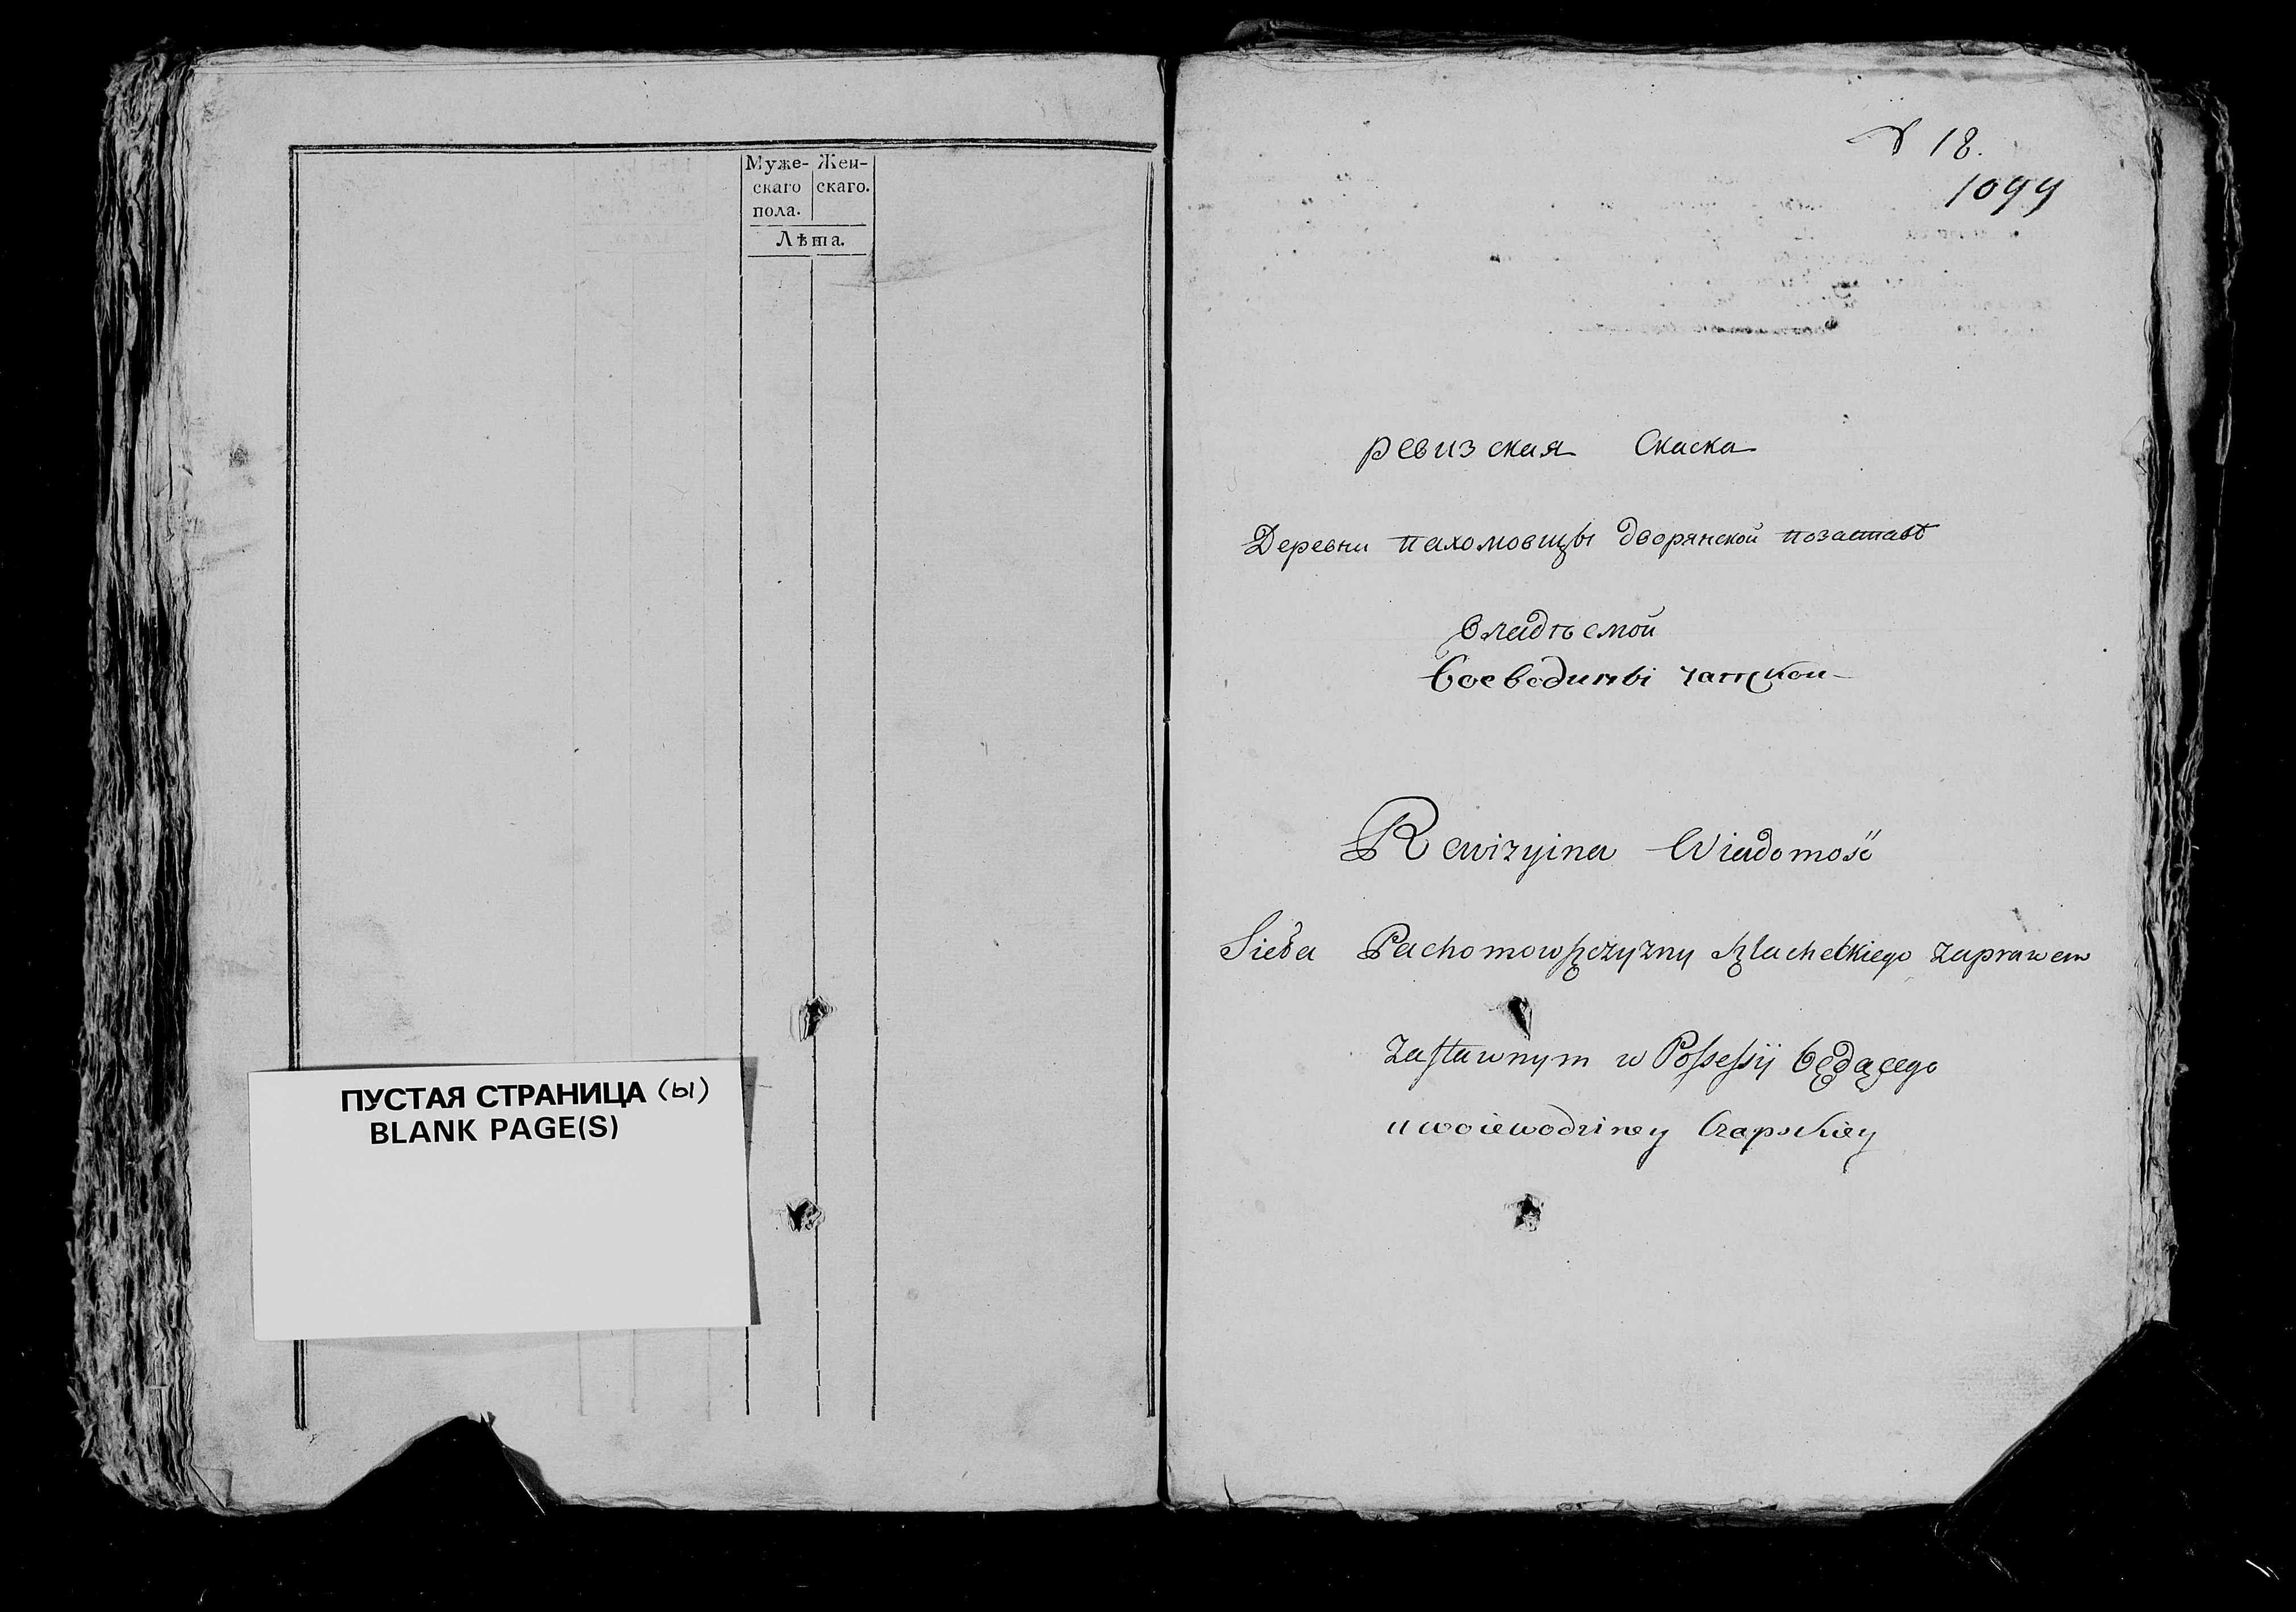 Муже- Жен-
скаго скаго.
пола.
Лѣта.
ПУСТАЯ СТРАНИЦА (ы)
BLANK PAGE(S)
№ 18.
1099
ревизская Скаска
Деревни пахомовщзы дворянской позаставѣ
владѣемой
воеводинъі чапскои
Rewizyina Wiadomość
Sioła Pachomowszczyzny szlacheckiego zaprawem
zastawnym w Possessij będącego
u woiewodziney Czapskiey